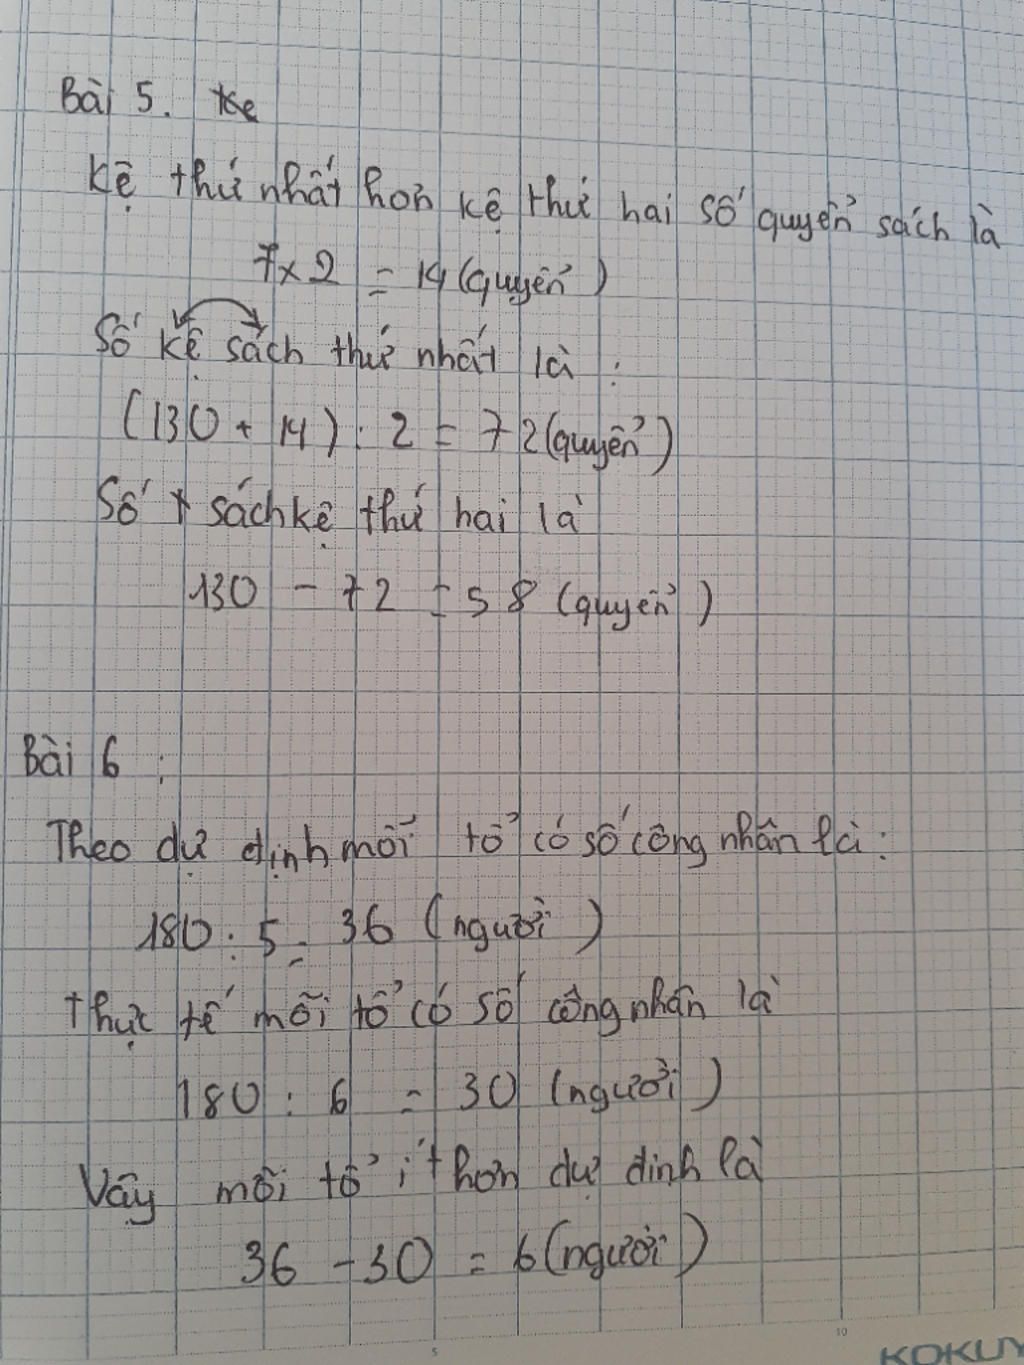 Bài 5.
Kệ thứ nhất hơn kệ thứ hai số quyển sách là
7 x 2 = 14 (quyển)
Số kệ sách thứ nhất là :
(130 + 14) : 2 = 72 (quyển)
Số sách kệ thứ hai là
130 - 72 = 58 (quyển)
Bài 6 :
Theo dự định mỗi tổ có số công nhân là :
180 : 5 = 36 (người)
Thực tế mỗi tổ có số công nhân là
180 : 6 = 30 (người)
Vậy mỗi tổ ít hơn dự định là
36 - 30 = 6 (người)
5
10
KOKUY